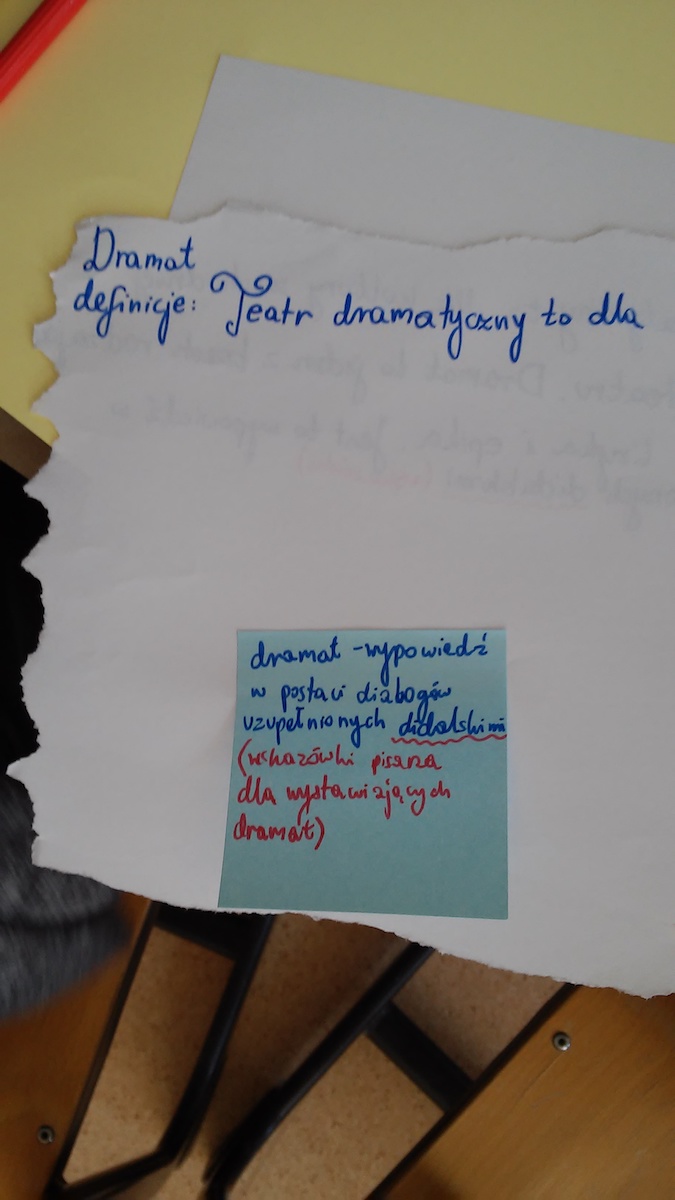 Dramat
definicje: Teatr dramatyczny to dla
dramat - wypowiedź
w postaci dialogów
uzupełnionych didalskimi
(wskazówki pisarza
dla wystawiających
dramat)